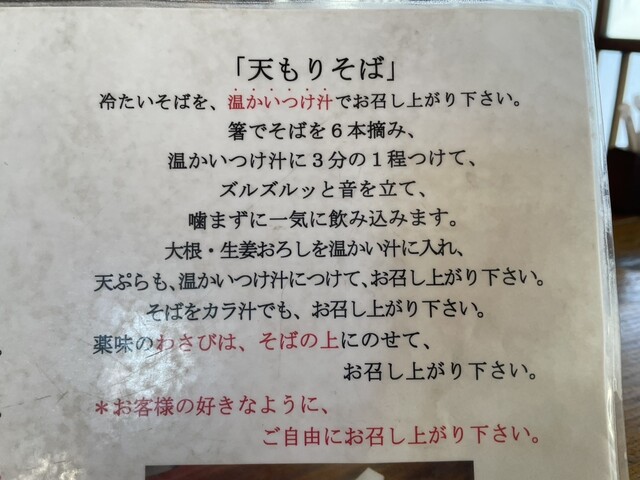 「天もりそば」
冷たいそばを、温かいつけ汁でお召し上がり下さい。
箸でそばを６本摘み、
温かいつけ汁に３分の１程つけて、
ズルズルッと音を立て、
噛まずに一気に飲み込みます。
大根・生姜おろしを温かい汁に入れ、
天ぷらも、温かいつけ汁につけて、お召し上がり下さい。
そばをカラ汁でも、お召し上がり下さい。
薬味のわさびは、そばの上にのせて、
お召し上がり下さい。
＊お客様の好きなように、
ご自由にお召し上がり下さい。